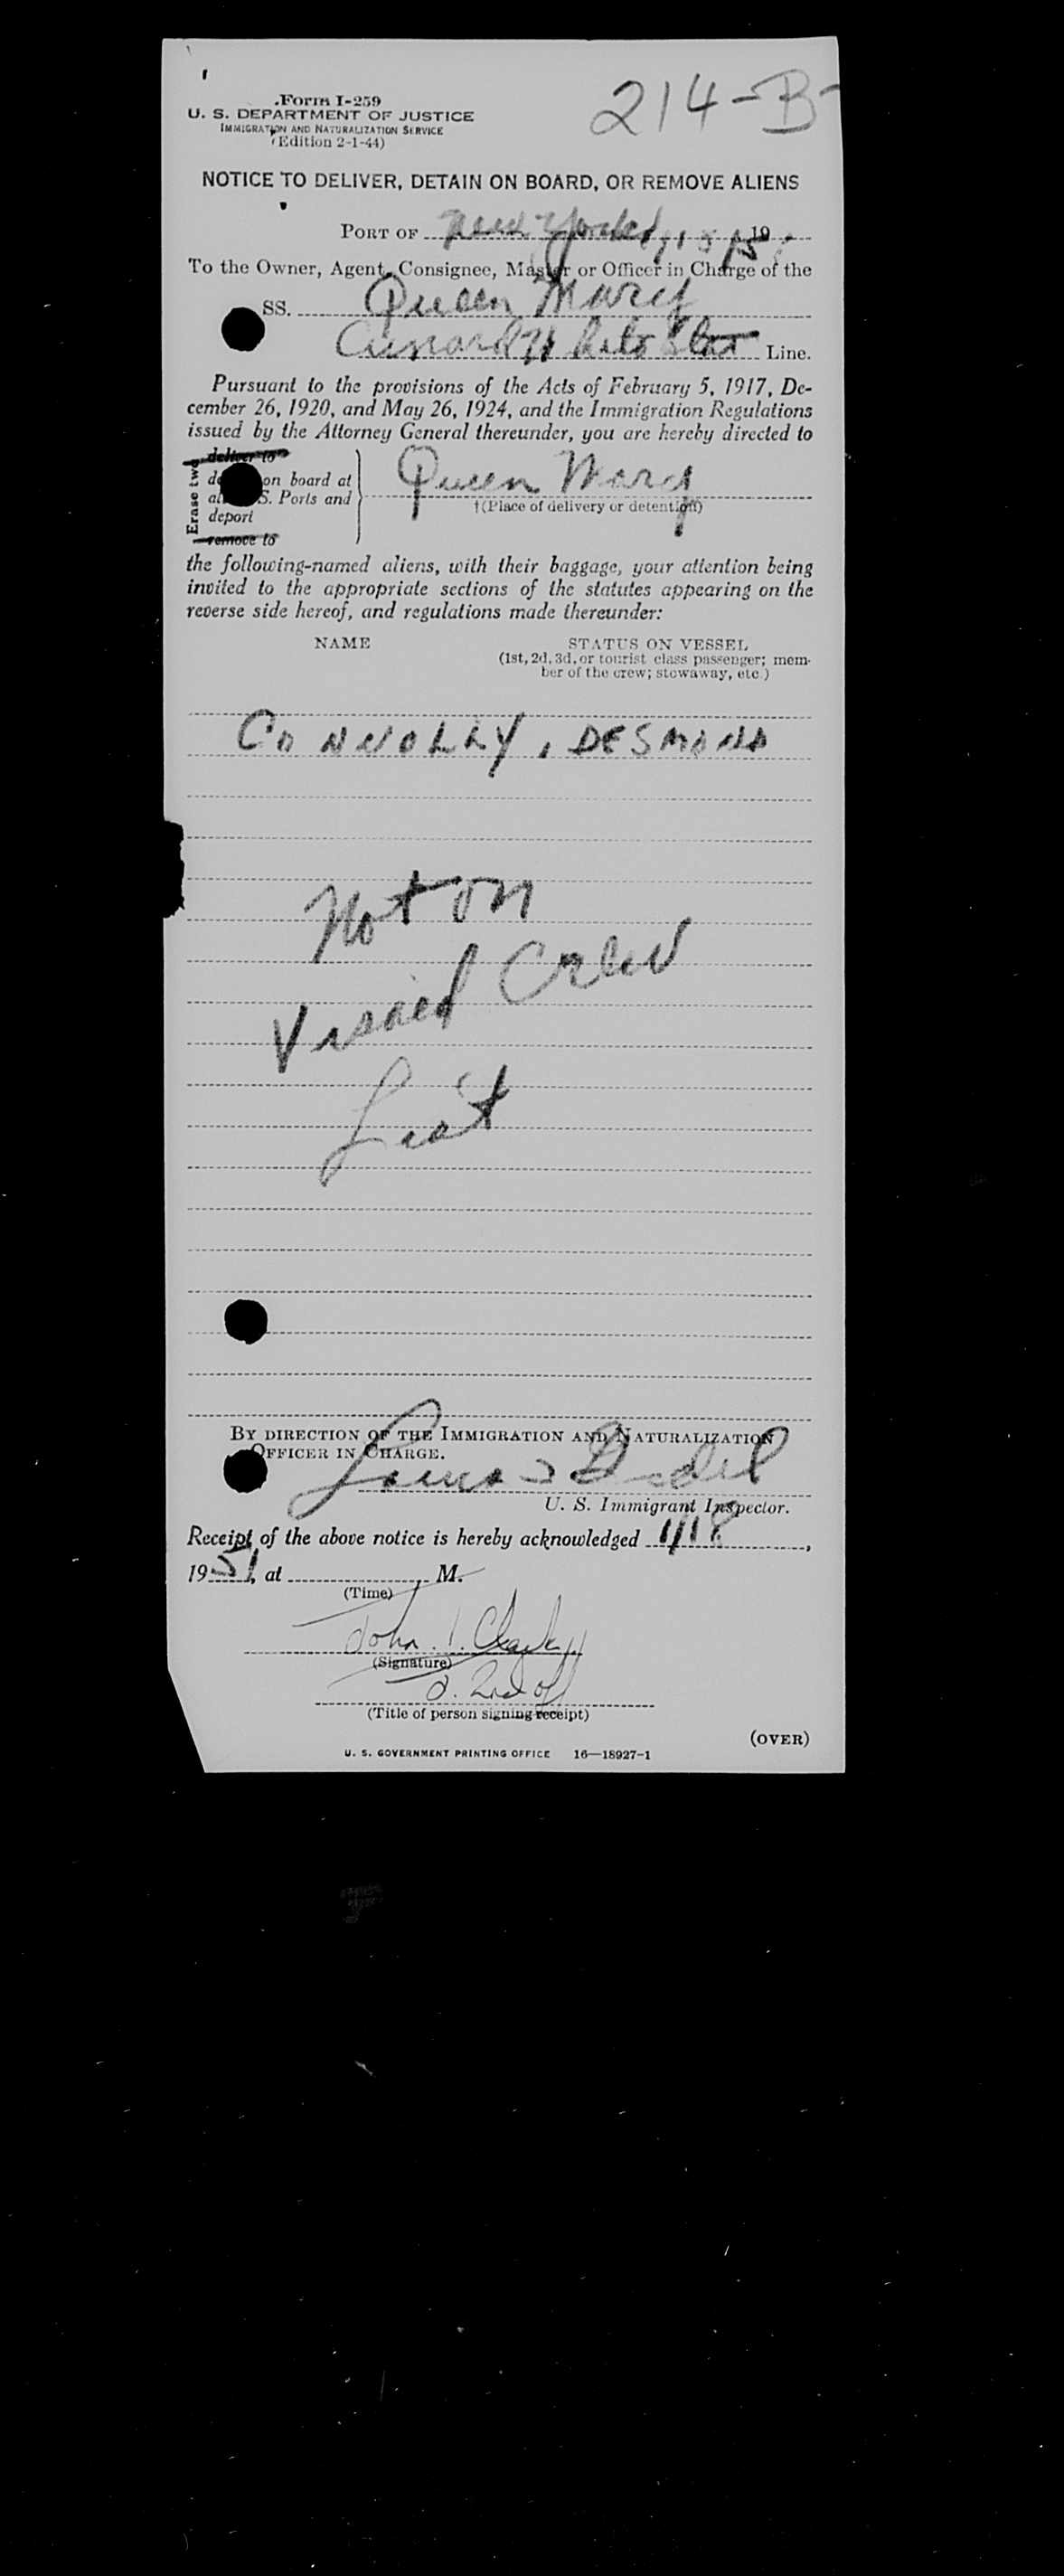 214-B-
Form I-259
U. S. DEPARTMENT OF JUSTICE
IMMIGRATION AND NATURALIZATION SERVICE
(Edition 2-1-44)
NOTICE TO DELIVER, DETAIN ON BOARD, OR REMOVE ALIENS
PORT OF New York 19
To the Owner, Agent, Consignee, Master or Officer in Charge of the
SS. Queen Mary
Cunard White Star Line.
Pursuant to the provisions of the Acts of February 5, 1917, De-
cember 26, 1920, and May 26, 1924, and the Immigration Regulations
issued by the Attorney General thereunder, you are hereby directed to
Erase two
deliver to
on board at
S. Ports and
deport
remove to
Queen Mary
†(Place of delivery or detention)
the following-named aliens, with their baggage, your attention being
invited to the appropriate sections of the statutes appearing on the
reverse side hereof, and regulations made thereunder:
NAME STATUS ON VESSEL
(1st, 2d, 3d, or tourist class passenger; mem-
ber of the crew; stowaway, etc.)
CONNOLLY, DESMOND
Not on
Visaed Crew
List
BY DIRECTION OF THE IMMIGRATION AND NATURALIZATION
OFFICER IN CHARGE.
U. S. Immigrant Inspector.
Receipt of the above notice is hereby acknowledged 1/18,
1951, at , M.
(Time)
John
(Signature)
(Title of person signing receipt)
(OVER)
U. S. GOVERNMENT PRINTING OFFICE 16—18927-1